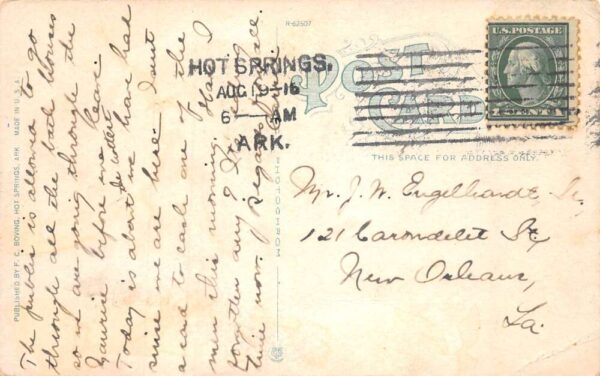 R-62507
HOT SPRINGS,
AUG 9-16
6-AM
ARK.
U.S. POSTAGE
POST
CARD
THIS SPACE FOR ADDRESS ONLY.
Mr. J. W. Engelhardt Sr,
121 Carondelet St,
New Orleans,
La.
PUBLISHED BY F. C. BOVING, HOT SPRINGS, ARK. MADE IN U.S.A.
The public is allowed to go
through all the bath houses
so we are going through the
Maurice before we leave.
Today is about the hottest we have had
since we are here. I sent
a card to each one of the
men this morning. I
forgotten any
now. Regards to all.